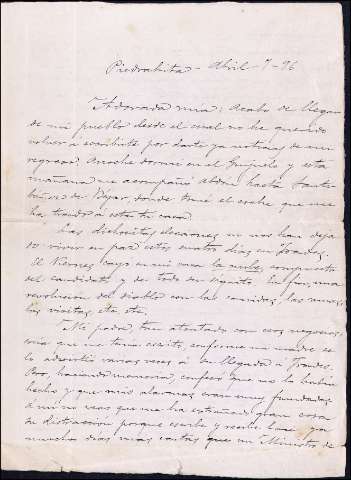 Piedrahita - Abril - 7 - 96
Adorada mia: Acabo de llegar
de mi pueblo desde el cual no he querido
volver a escribirte por darte ya noticias de mi
regreso. Anoche dormí en el y esta
mañana me acompañó Abdón hasta Santi-
báñez de Béjar, donde tomé el coche que me
ha traido á esta tu casa.
Las dichosas elecciones no nos han deja-
do vivir en paz estos cuatro días en Frades.
El Viernes cayó en mi casa la nube, compuesta
del candidato y de todo su séquito. En fin, una
revolucion del diablo con las comidas, las
las visitas, etc. etc.
Mi padre, tan atontado con esos negocios,
creía que me tenia escrito, conforme mi madre se
lo advirtió varias veces á su llegada á Frades.
Pero, haciendo memoria, confesó que no lo habia
hecho y que mis alarmas eran muy fundadas.
A mi no creas que me ha extrañado gran cosa
su distraccion porque escribe y recibe hace ya
muchos días mas cartas que un Ministro de